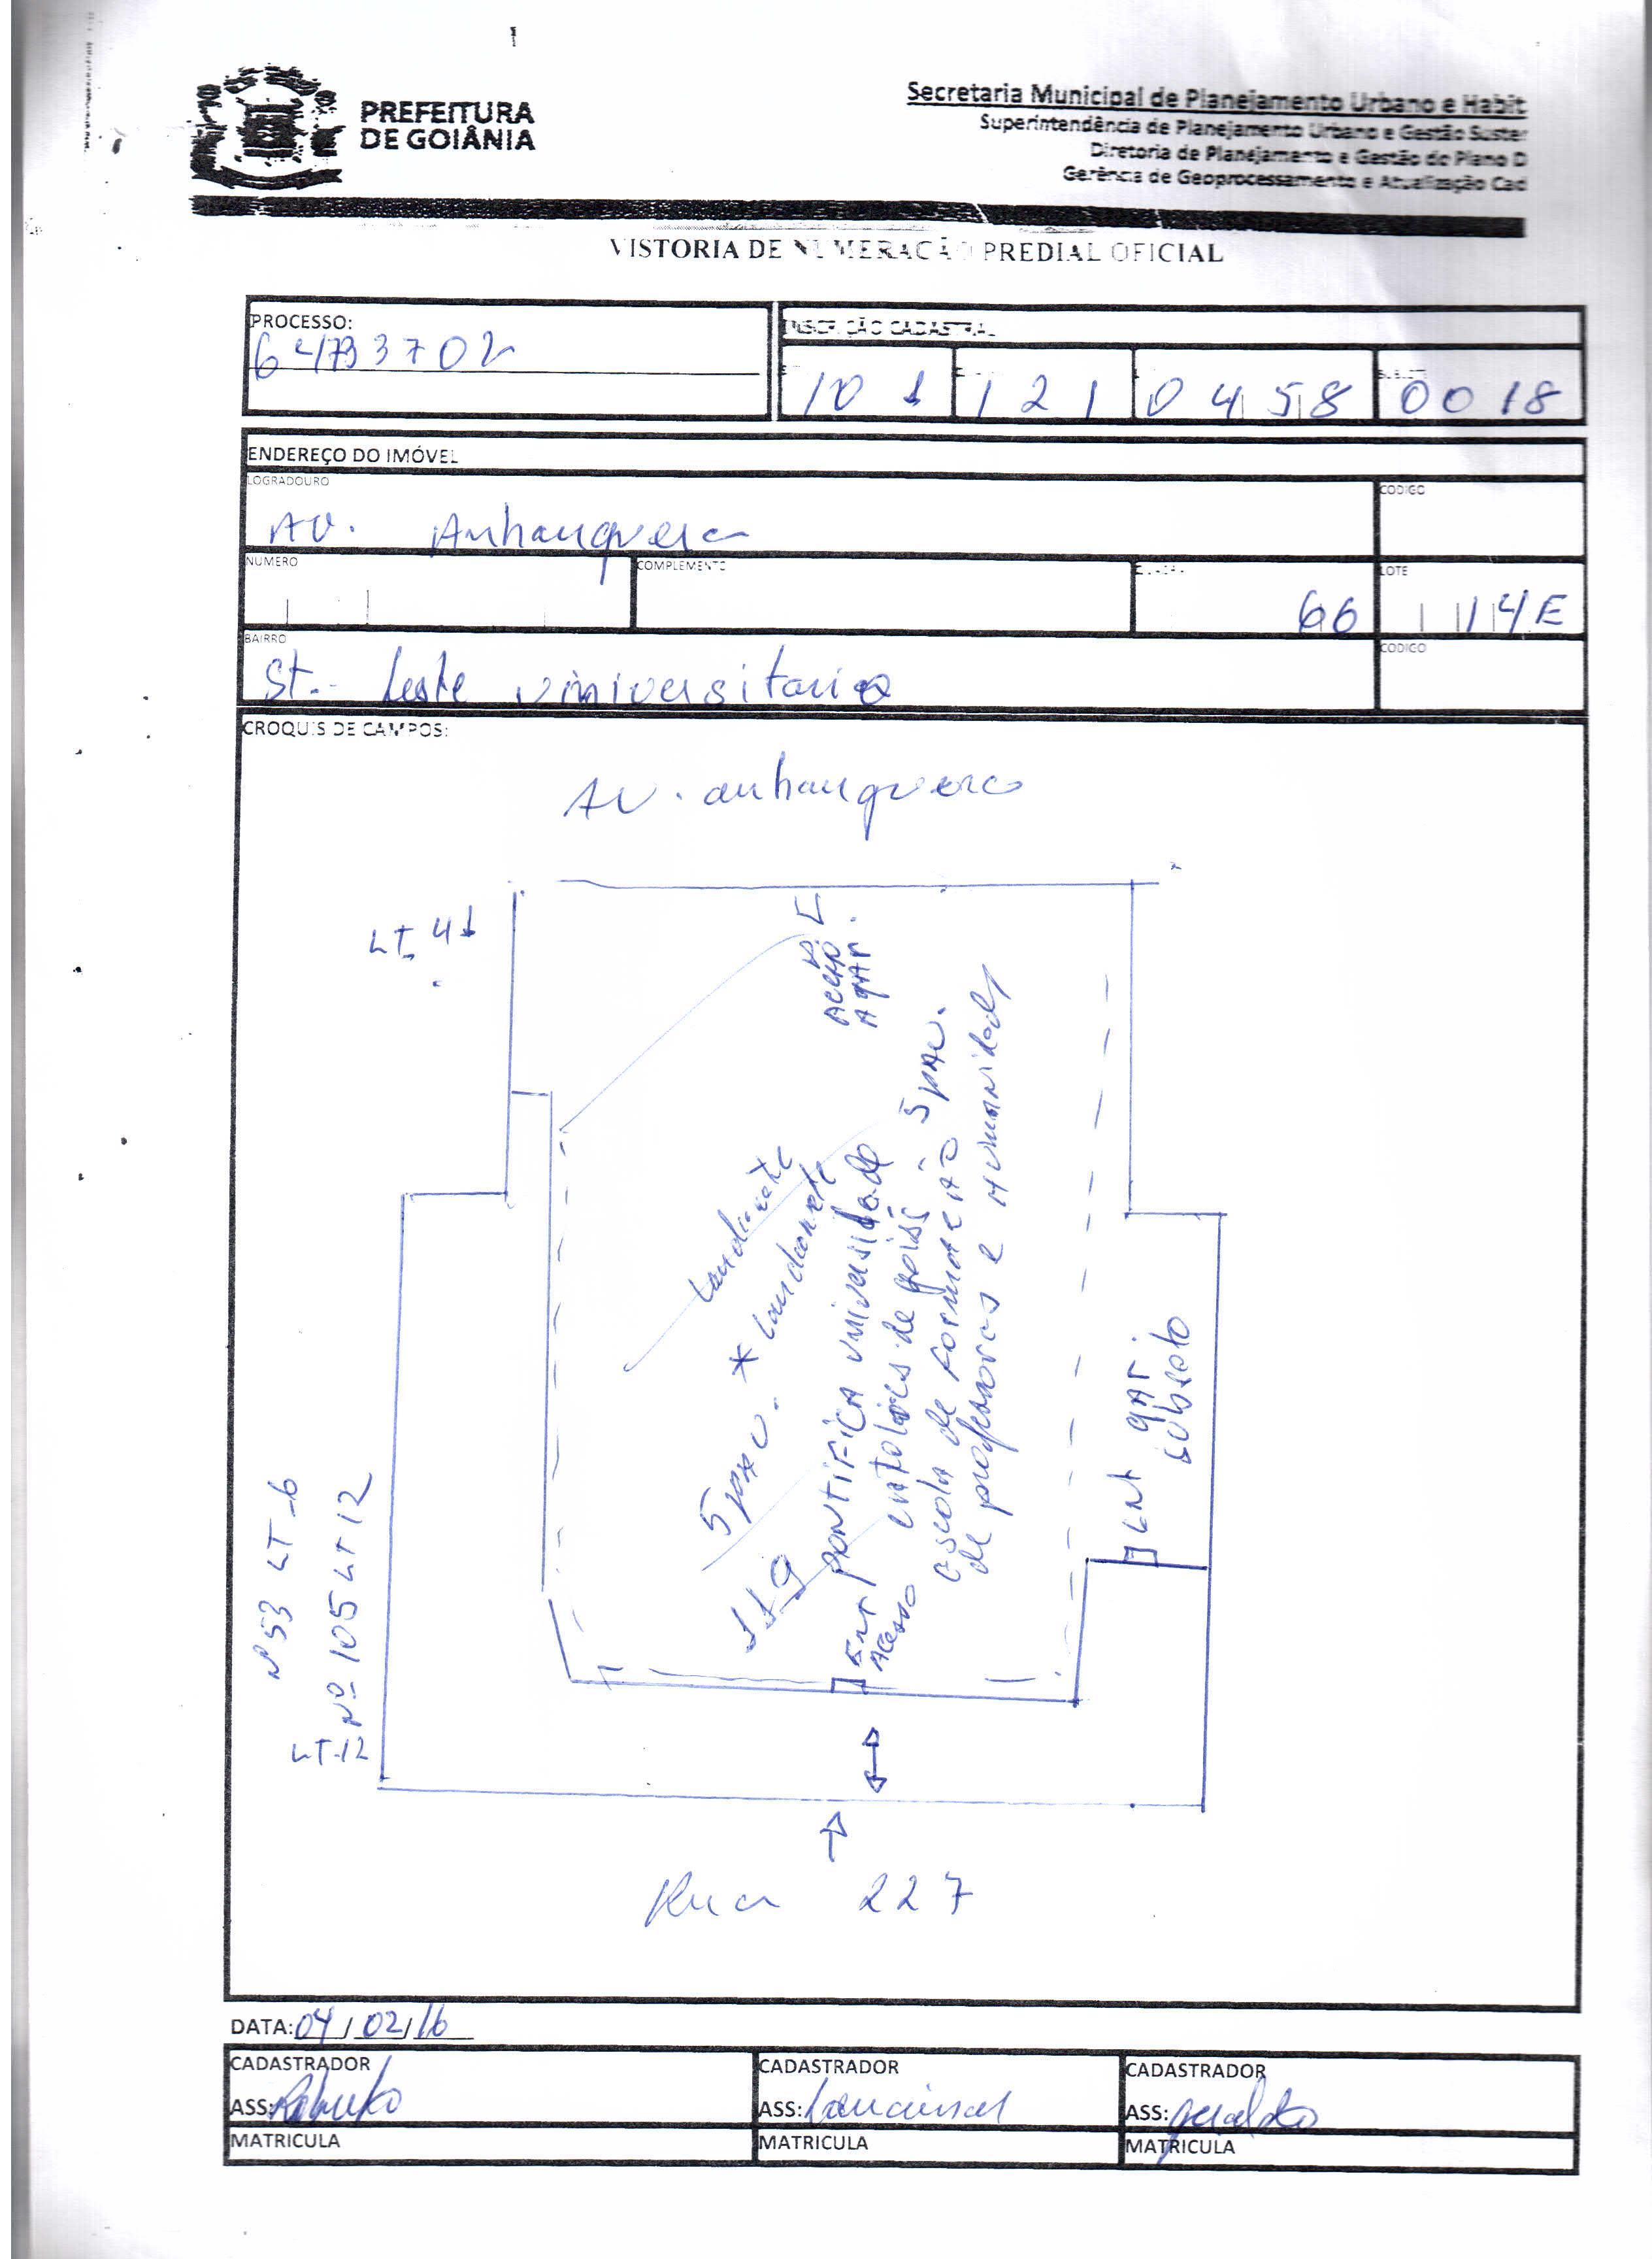 PREFEITURA
DE GOIÂNIA
Secretaria Municipal de Planejamento Urbano e Habit
Superintendência de Planejamento Urbano e Gestão Suster
Diretoria de Planejamento e Gestão do Plano D
Gerência de Geoprocessamento e Atualização Cad
VISTORIA DE NUMERAÇÃO PREDIAL OFICIAL
PROCESSO:
64733702
INSCRIÇÃO CADASTRAL
101 121 0458 0018
ENDEREÇO DO IMÓVEL
LOGRADOURO
CODIGO
AV. Anhanguera
NUMERO
COMPLEMENTO
QUADRA
66
LOTE
14E
BAIRRO
CODIGO
St. Leste universitario
CROQUIS DE CAMPOS:
AV. anhanguera
LT. 41
Acesso
A gar.
Lanchonete
5 pav. * Lanchonete
119
pontifica universidade
catolica de goias
escola de formação 5 pav.
de professores e humanidades
Ent
Acesso
Ent gar.
subsolo
Nº 53 LT-6
Nº 105 LT 12
LT-12
Rua 227
DATA: 04/02/16
CADASTRADOR
ASS:
MATRICULA
CADASTRADOR
ASS:
MATRICULA
CADASTRADOR
ASS: geraldo
MATRICULA